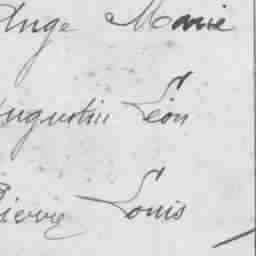 Ange Marie
Augustin Léon
Pierre Louis